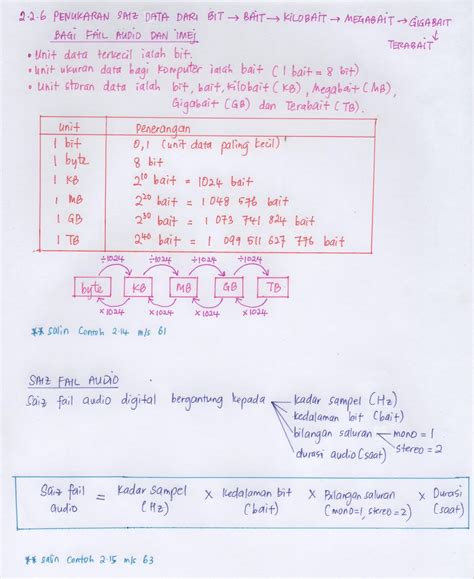 2.2.6 PENUKARAN SAIZ DATA DARI BIT → BAIT → KILOBAIT → MEGABAIT → GIGABAIT
BAGI FAIL AUDIO DAN IMEJ ↓
TERABAIT
• Unit data terkecil ialah bit.
• unit ukuran data bagi komputer ialah bait (1 bait = 8 bit)
• Unit storan data ialah bit, bait, kilobait (KB), Megabait (MB),
Gigabait (GB) dan Terabait (TB).
unit Penerangan
1 bit 0,1 (unit data paling kecil)
1 byte 8 bit
1 KB 2^10 bait = 1024 bait
1 MB 2^20 bait = 1 048 576 bait
1 GB 2^30 bait = 1 073 741 824 bait
1 TB 2^40 bait = 1 099 511 627 776 bait
÷1024 ÷1024 ÷1024 ÷1024
byte KB MB GB TB
×1024 ×1024 ×1024 ×1024
** Salin Contoh 2.14 m/s 61
SAIZ FAIL AUDIO
Saiz fail audio digital bergantung kepada
kadar sampel (Hz)
kedalaman bit (bait)
bilangan saluran mono = 1
stereo = 2
durasi audio (saat)
Saiz fail audio = Kadar sampel (Hz) × Kedalaman bit (bait) × Bilangan saluran (mono=1, stereo=2) × Durasi (saat)
** salin contoh 2.15 m/s 63